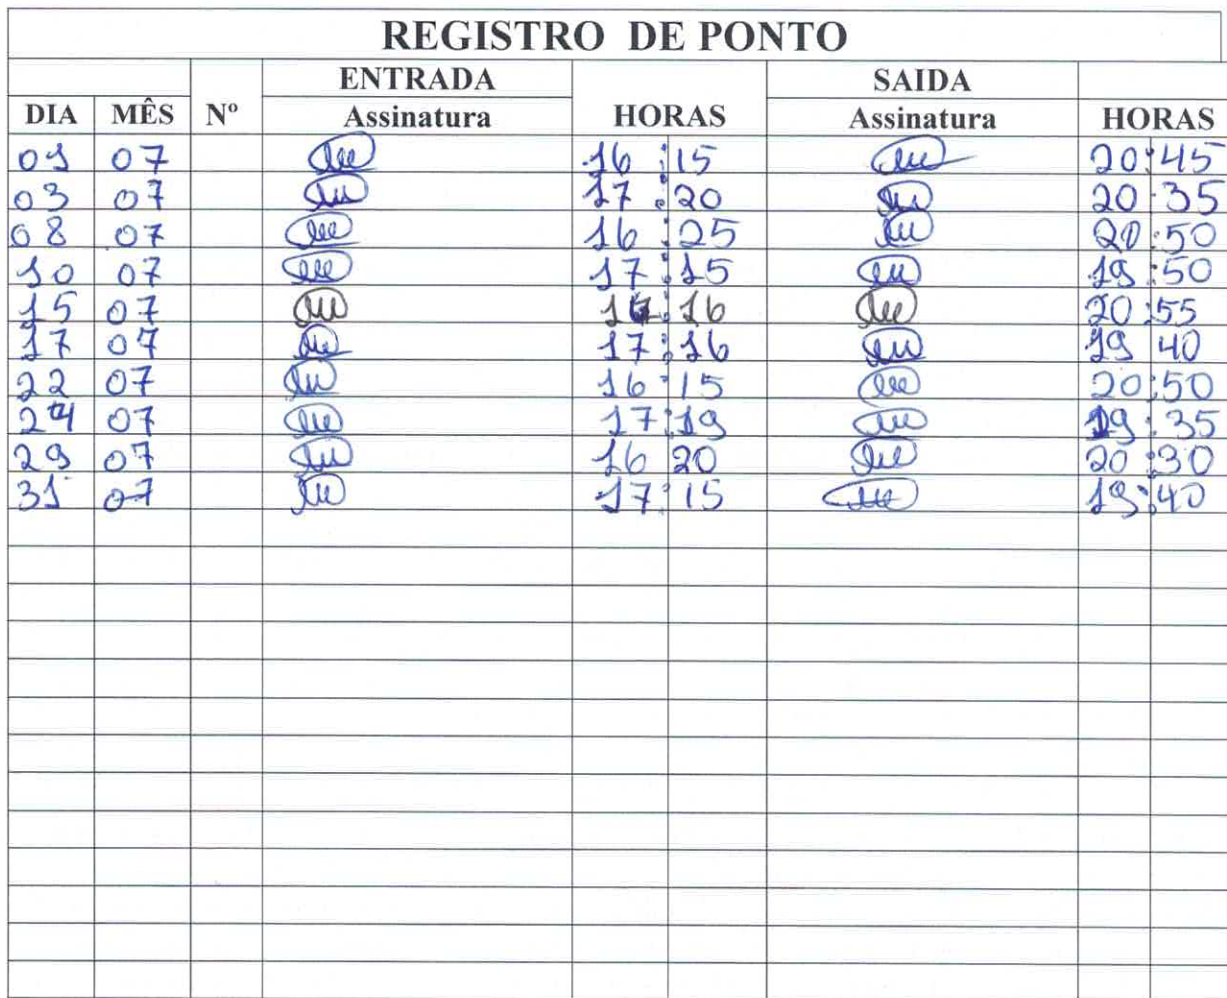 REGISTRO DE PONTO
ENTRADA SAIDA
DIA MÊS Nº Assinatura HORAS Assinatura HORAS
01 07 16:15 20:45
03 07 17:20 20:35
08 07 16:25 20:50
10 07 17:15 19:50
15 07 :16 20:55
17 07 17:16 19 40
22 07 16:15 20:50
24 07 17:19 19:35
29 07 16 20 20:30
31 07 17:15 19:40